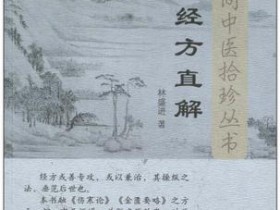 间中医拾珍丛书
经方直解
林盛进 著
经方或善专攻，或以兼治，其操纵之
法，垂范后世也。
本书融《伤寒论》《金匮要略》之方